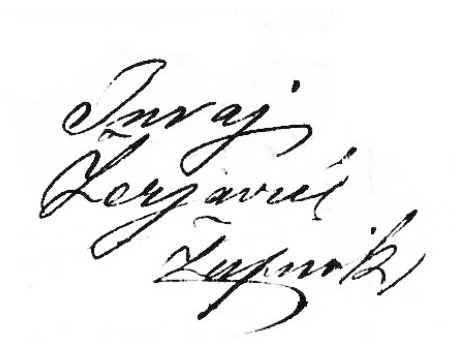 Juraj
Žerjavić
župnik